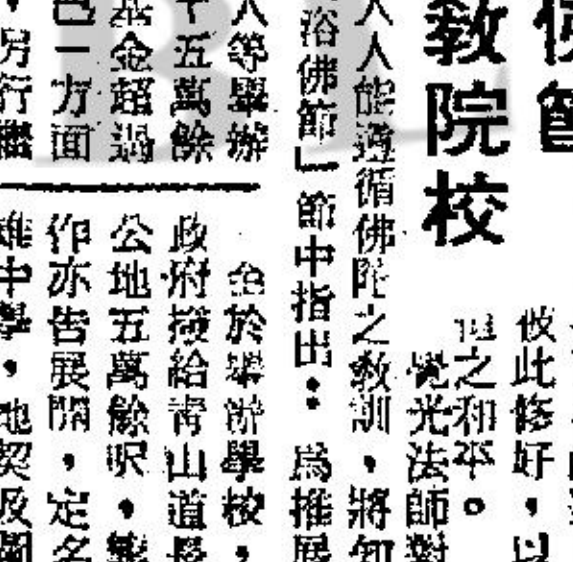 佛
教院校
彼此修好，以
坦之和平。
覺光法師對
人人能遵循佛陀之教訓，將知
浴佛節」一節中指出：爲推展
人等舉辦
十五萬餘
基金超過
色一方面
，另行繼
至於舉辦學校，
政府撥給青山道長
公地五萬餘呎，
作亦告展開，定名
雄中學，地契及圖